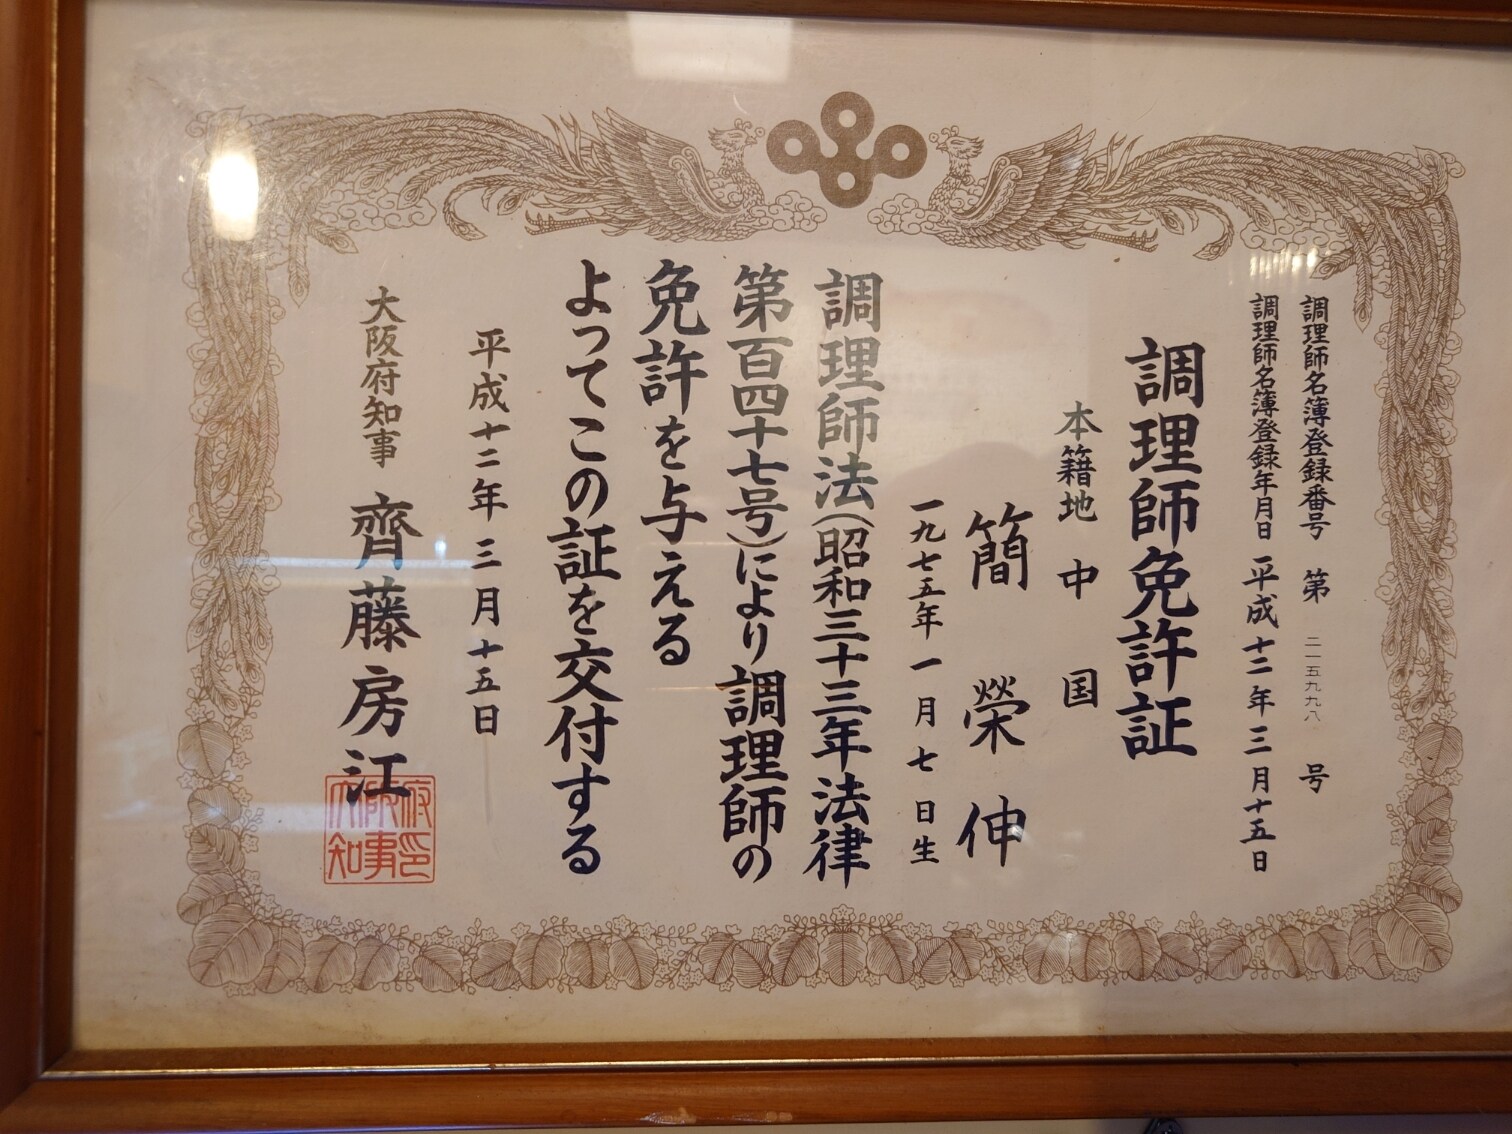 調理師名簿登録番号 第 二一五九九八 号
調理師名簿登録年月日 平成十二年三月十五日
調理師免許証
本籍地 中国
簡榮伸
一九七五年一月七日生
調理師法(昭和三十三年法律
第百四十七号)により調理師の
免許を与える
よってこの証を交付する
平成十二年三月十五日
大阪府知事 齊藤房江
大阪府知事印